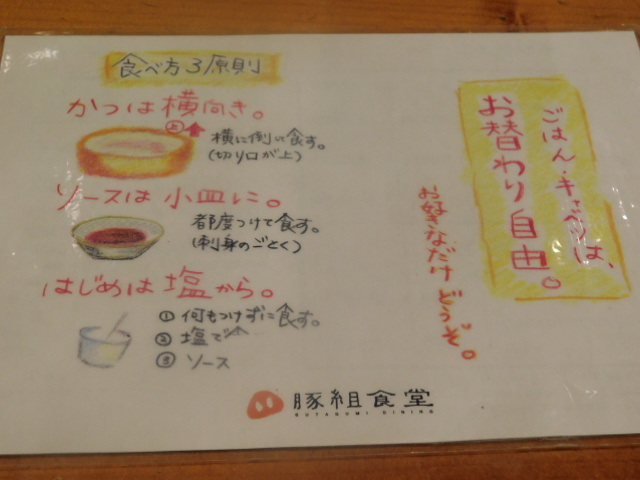 食べ方3原則
かつは横向き。
上
横に倒して食す。
(切り口が上)
ソースは小皿に。
都度つけて食す。
(刺身のごとく)
はじめは塩から。
① 何もつけずに食す。
② 塩で
③ ソース
ごはん・キャベツは、
お替わり自由。
お好きなだけどうぞ。
豚組食堂
BUTAGUMI DINING